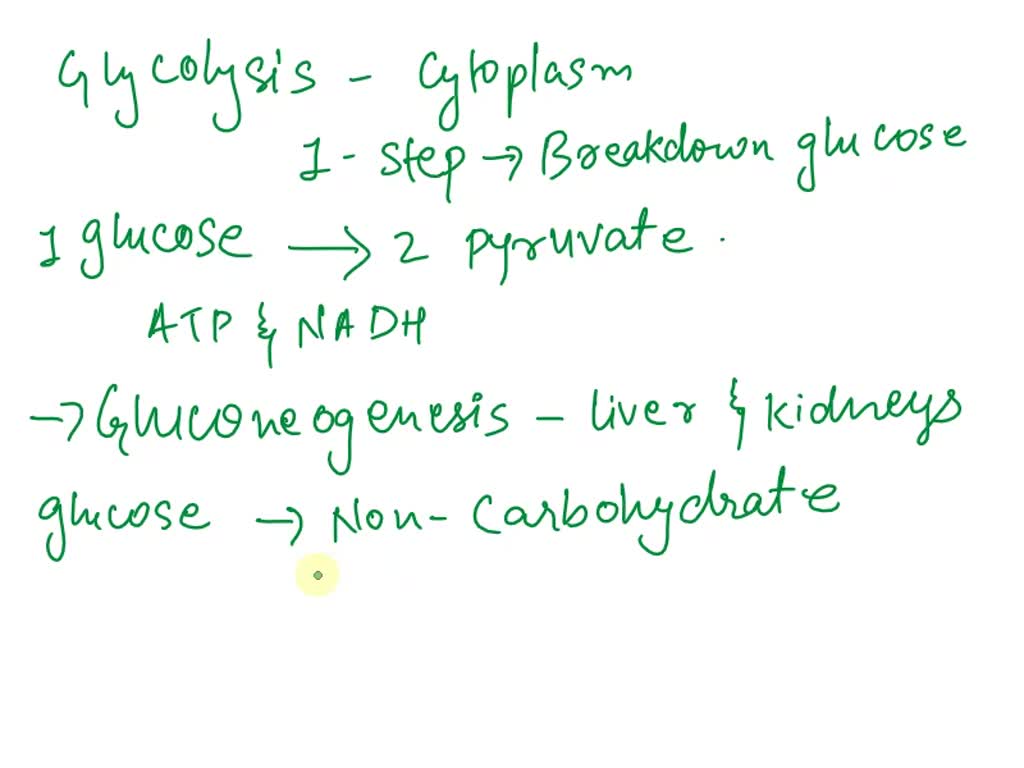 Glycolysis - Cytoplasm
1 - step → Breakdown glucose
1 glucose → 2 pyruvate .
ATP & NADH
→ Gluconeogenesis - liver & kidneys
glucose → Non - Carbohydrate